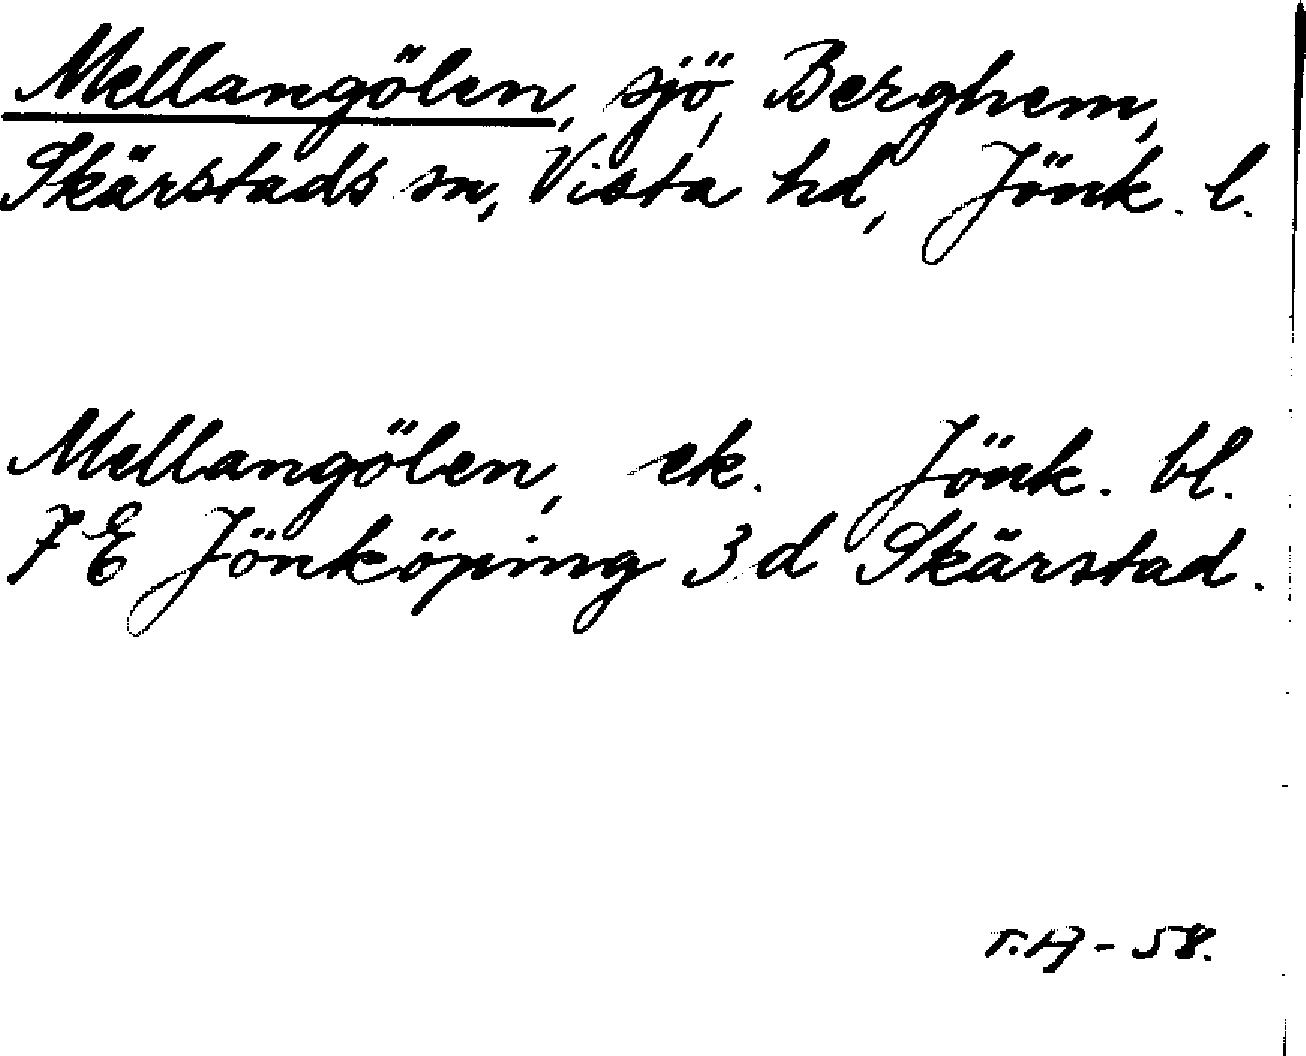 Mellangölen, sjö, Berghem,
Skärstads sn, Vista hd, Jönk. l.
Mellangölen, ek. Jönk. bl.
7 E Jönköping 3 d Skärstad.
T.H - 58.